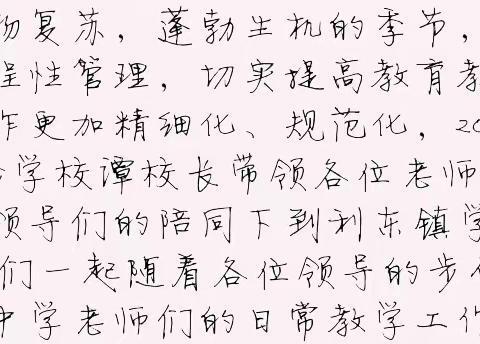 物复苏，蓬勃生机的季节，
程性管理，切实提高教育教
作更加精细化、规范化，20
学校谭校长带领各位老师
领导们的陪同下到利东镇学
们一起随着各位领导的步伐
中学老师们的日常教学工作